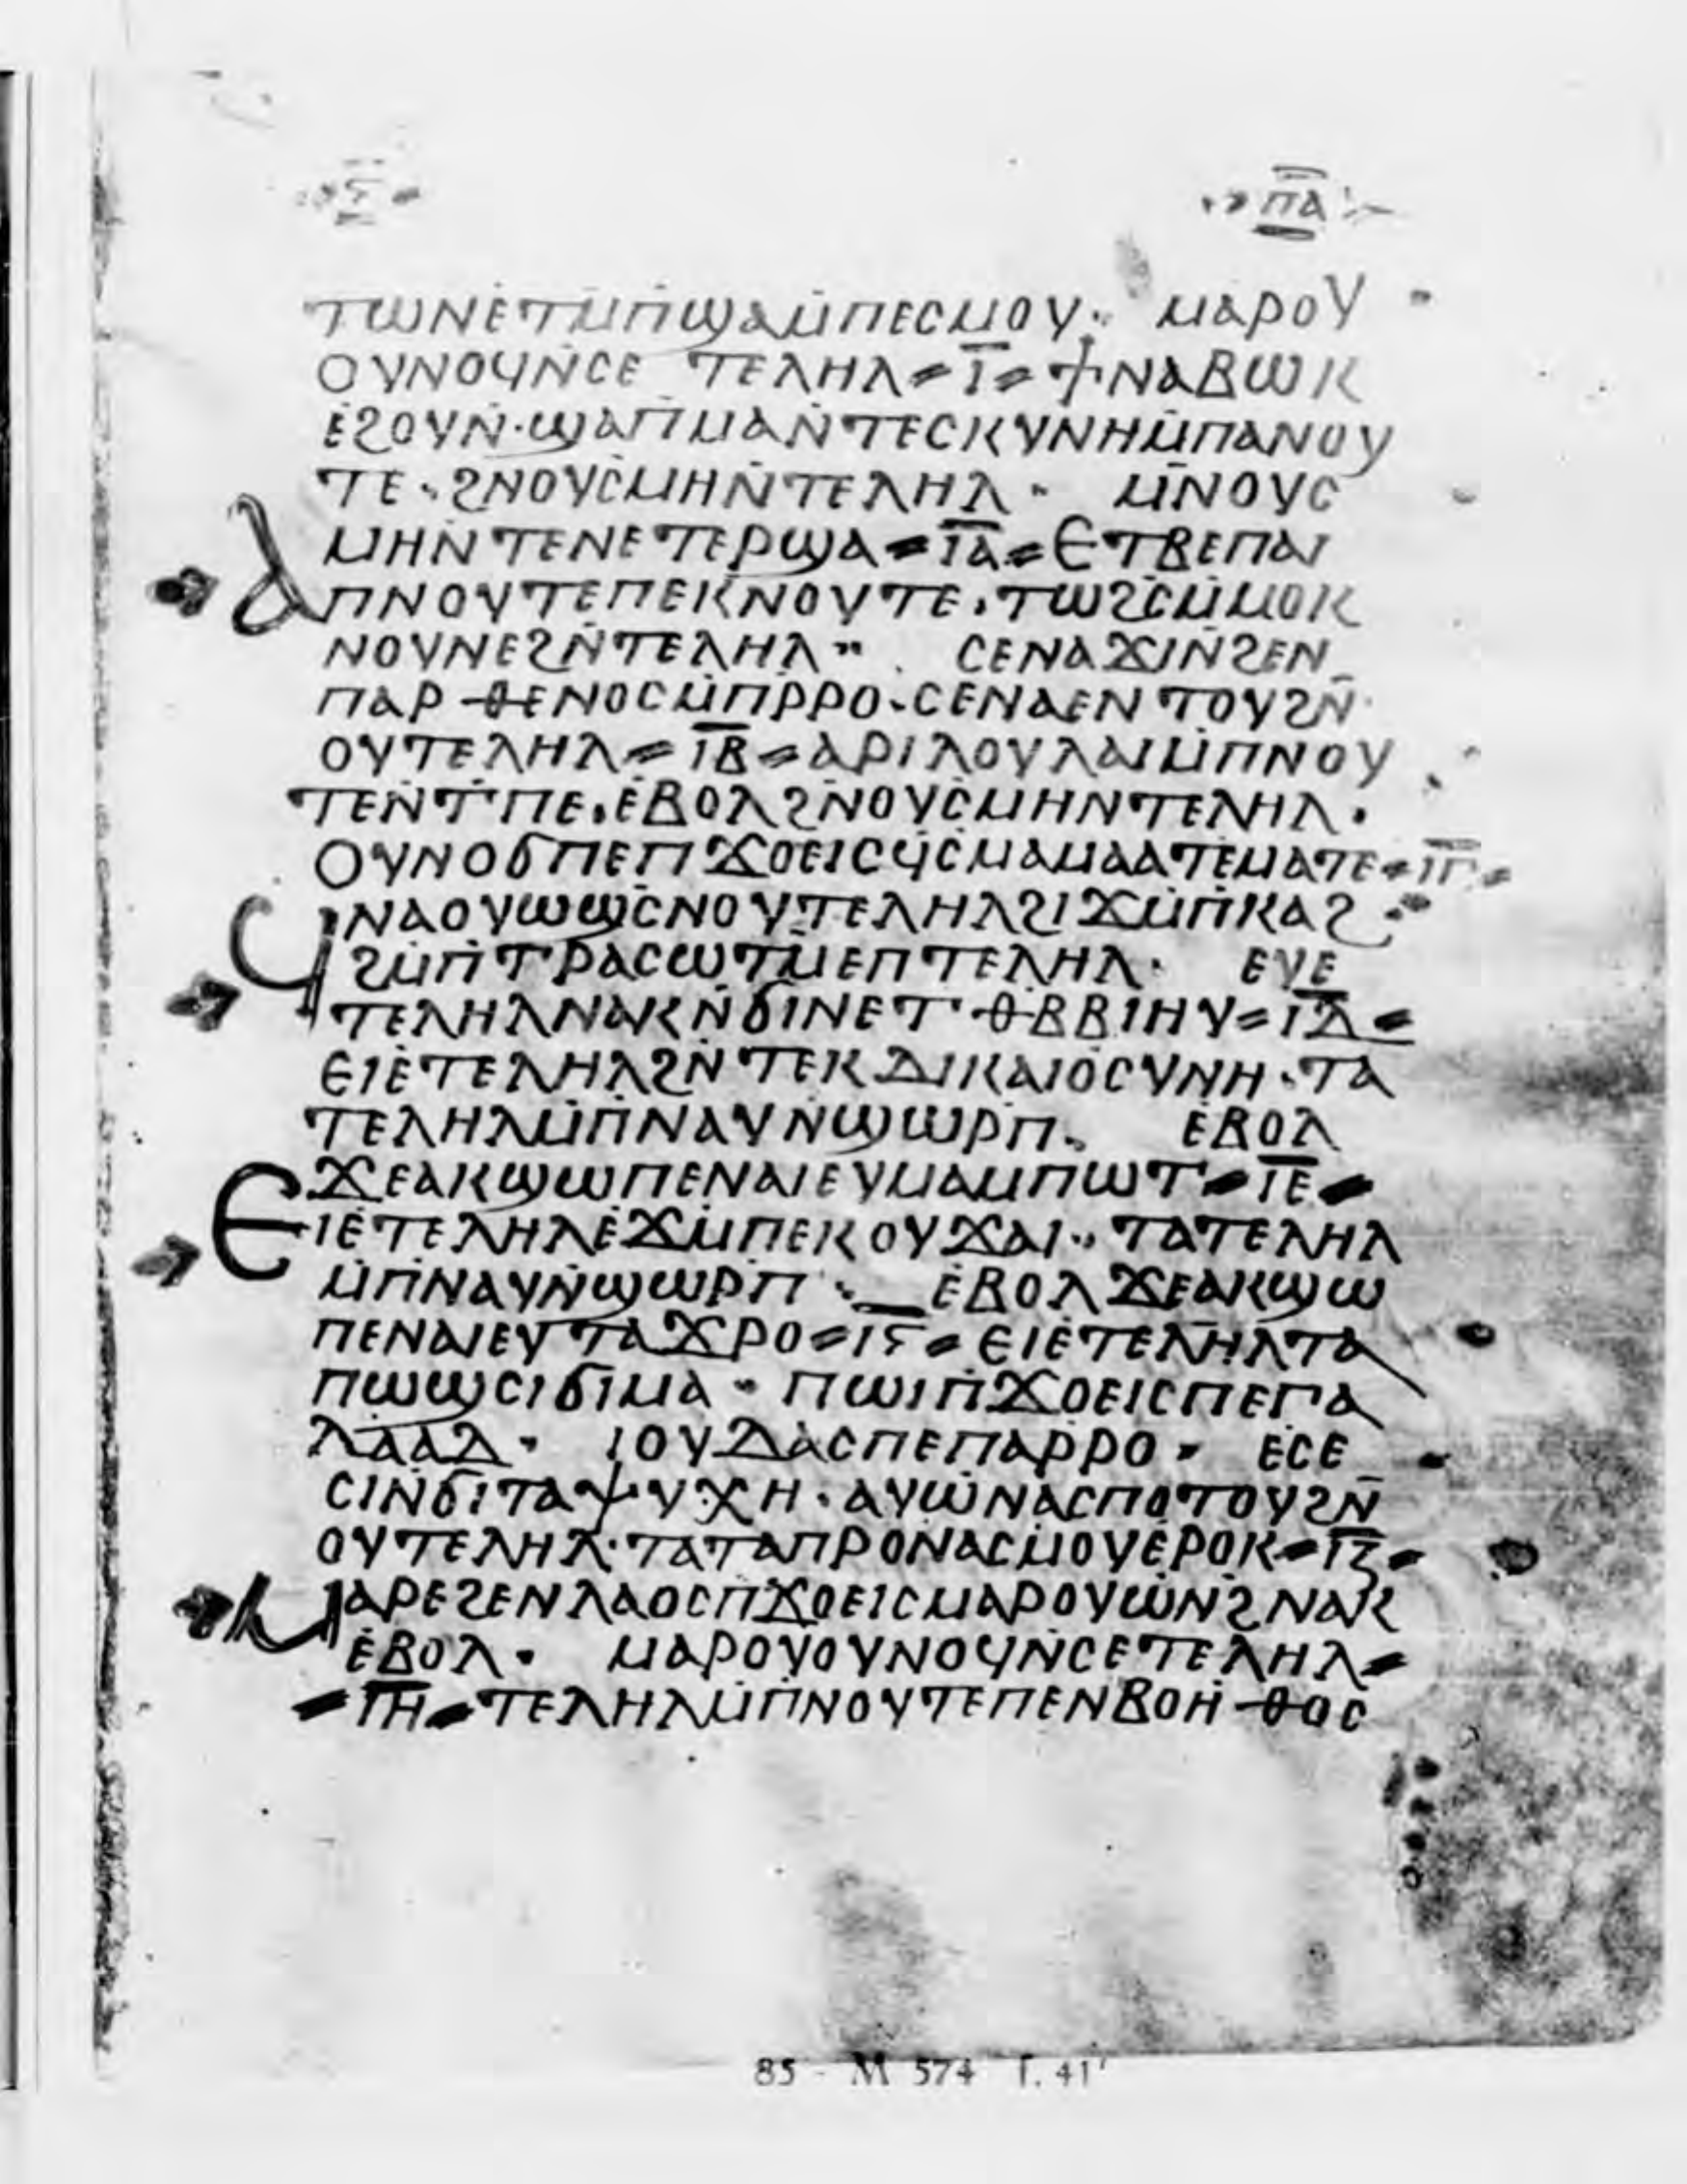 ⲋ ⲡⲁ
ⲧⲱⲛⲉⲧⲙⲡϣⲁⲙⲡⲉⲥⲙⲟⲩ· ⲙⲁⲣⲟⲩ
ⲟⲩⲛⲟϥⲛⲥⲉ ⲧⲉⲗⲏⲗ = ⲓ̅ = ϯⲛⲁⲃⲱⲕ
ⲉϩⲟⲩⲛ·ϣⲁⲡⲙⲁⲛⲧⲉⲥⲕⲩⲛⲏⲙⲡⲁⲛⲟⲩ
ⲧⲉ·ϩⲛⲟⲩⲥⲙⲏⲛⲧⲉⲗⲏⲗ· ⲙⲛⲟⲩⲥ
ⲙⲏⲛⲧⲉⲛⲉⲧⲉⲣϣⲁ = ⲓ̅ⲁ̅ = ⲉⲧⲃⲉⲡⲁⲓ
ⲁⲡⲛⲟⲩⲧⲉⲡⲉⲕⲛⲟⲩⲧⲉ·ⲧⲱϩⲥⲙⲙⲟⲕ
ⲛⲟⲩⲛⲉϩⲛⲧⲉⲗⲏⲗ· ⲥⲉⲛⲁϫⲓⲛϩⲉⲛ
ⲡⲁⲣⲑⲉⲛⲟⲥⲙⲡⲣⲣⲟ·ⲥⲉⲛⲁⲉⲛⲧⲟⲩϩⲛ
ⲟⲩⲧⲉⲗⲏⲗ = ⲓ̅ⲃ̅ = ⲁⲣⲓⲗⲟⲩⲗⲁⲓⲙⲡⲛⲟⲩ
ⲧⲉⲛⲧⲡⲉ·ⲉⲃⲟⲗϩⲛⲟⲩⲥⲙⲏⲛⲧⲉⲗⲏⲗ·
ⲟⲩⲛⲟϭⲡⲉⲡϫⲟⲉⲓⲥϥⲥⲙⲁⲙⲁⲁⲧⲉⲙⲁⲧⲉ = ⲓ̅ⲅ̅ =
ϥⲛⲁⲟⲩⲱϣⲥⲛⲟⲩⲧⲉⲗⲏⲗϩⲓϫⲙⲡⲕⲁϩ·
ϩⲙⲡⲧⲣⲁⲥⲱⲧⲙⲉⲡⲧⲉⲗⲏⲗ· ⲉⲩⲉ
ⲧⲉⲗⲏⲗⲛⲁⲕⲛϭⲓⲛⲉⲧⲑⲃⲃⲓⲏⲩ = ⲓ̅ⲇ̅ =
ⲉⲓⲉⲧⲉⲗⲏⲗϩⲛⲧⲉⲕⲇⲓⲕⲁⲓⲟⲥⲩⲛⲏ·ⲧⲁ
ⲧⲉⲗⲏⲗⲙⲡⲛⲁⲩⲛϣⲱⲣⲡ· ⲉⲃⲟⲗ
ϫⲉⲁⲕϣⲱⲡⲉⲛⲁⲓⲉⲩⲙⲁⲙⲡⲱⲧ = ⲓ̅ⲉ̅ =
ⲉⲓⲉⲧⲉⲗⲏⲗⲉϫⲙⲡⲉⲕⲟⲩϫⲁⲓ·ⲧⲁⲧⲉⲗⲏⲗ
ⲙⲡⲛⲁⲩⲛϣⲱⲣⲡ· ⲉⲃⲟⲗϫⲉⲁⲕϣⲱ
ⲡⲉⲛⲁⲓⲉⲩⲧⲁϫⲣⲟ = ⲓ̅ⲋ̅ = ⲉⲓⲉⲧⲉⲗⲏⲗⲧⲁ
ⲡⲱϣⲥⲓϭⲓⲙⲁ· ⲡⲱⲓⲡϫⲟⲉⲓⲥⲡⲉⲅⲁ
ⲗⲁⲁⲇ· ⲓⲟⲩⲇⲁⲥⲡⲉⲡⲁⲣⲣⲟ· ⲉⲥⲉ
ⲥⲓⲛϭⲓⲧⲁⲯⲩⲭⲏ·ⲁⲩⲱⲛⲁⲥⲡⲟⲧⲟⲩϩⲛ
ⲟⲩⲧⲉⲗⲏⲗ·ⲧⲁⲧⲁⲡⲣⲟⲛⲁⲥⲙⲟⲩⲉⲣⲟⲕ = ⲓ̅ⲍ̅ =
ⲙⲁⲣⲉϩⲉⲛⲗⲁⲟⲥⲡϫⲟⲉⲓⲥⲙⲁⲣⲟⲩⲱⲛϩⲛⲁⲕ
ⲉⲃⲟⲗ· ⲙⲁⲣⲟⲩⲟⲩⲛⲟϥⲛⲥⲉⲧⲉⲗⲏⲗ =
= ⲓ̅ⲏ̅ = ⲧⲉⲗⲏⲗⲙⲡⲛⲟⲩⲧⲉⲡⲉⲛⲃⲟⲏⲑⲟⲥ
85 - M 574 f. 41ʳ